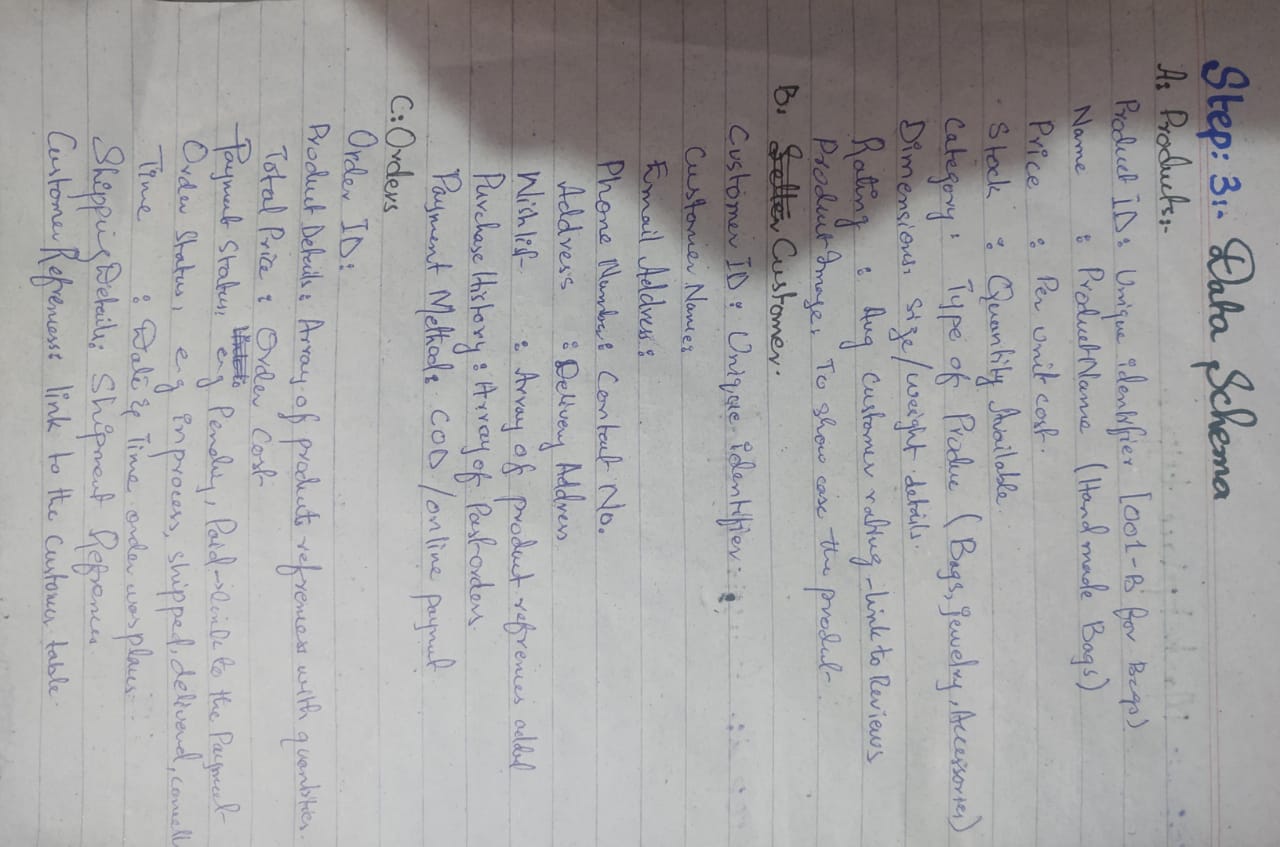 Step: 3:- Data Schema
A: Products:-
Product ID: Unique identifier [001-B for Bags)
Name : Product Name (Hand made Bags)
Price : Per unit cost.
Stock : Quantity Available
Category: Type of Produc (Bags, Jewelry, Accessories)
Dimensions: size/weight details.
Rating : Avg customer rating - link to Reviews
Product Image: To show case the product.
B: Customer.
Customer ID: Unique identifier:
Customer Name:
Email Address:
Phone Number: Contact No.
Address : Delivery Address
Wishlist : Array of product refrences added
Purchase History: Array of Past orders.
Payment Method: COD/online paymnt
C: Orders
Order ID:
Product Details: Array of products refrences with quantities.
Total Price: Order Cost
Payment Status: eg Pending, Paid-link to the Payment
Order Status, eg inprocess, shipped, delivered,
Time : Date & Time order was
Shipping Details: Shipment Refrences
Customer Refreness: link to the customer table